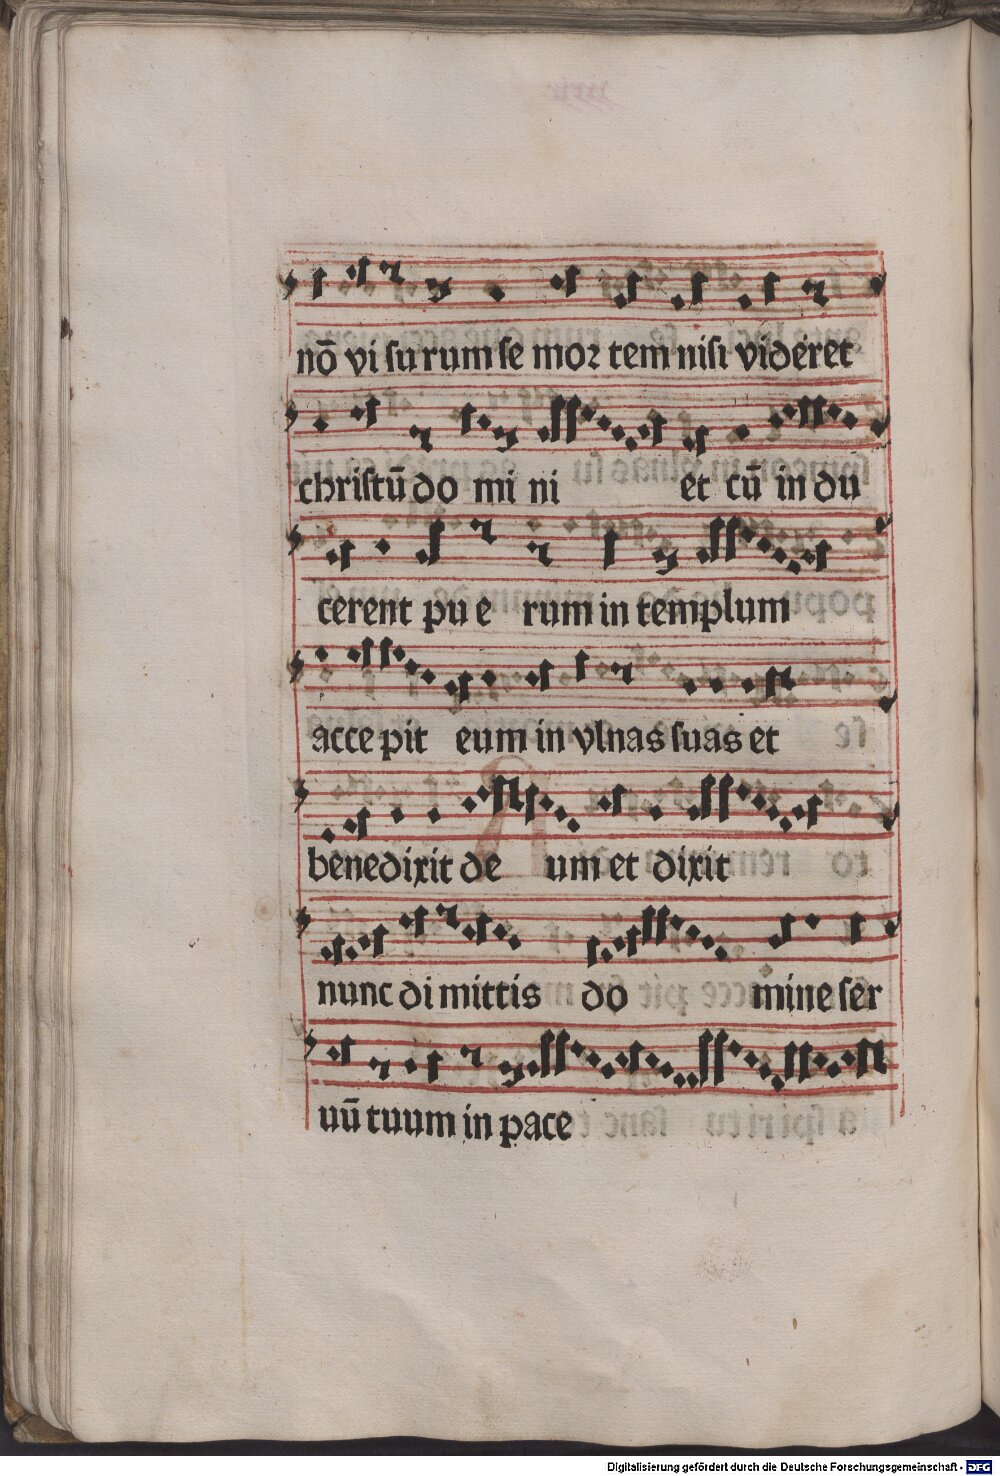 nō vi su rum se mor tem nisi videret
christū do mi ni et cū in du
cerent pu e rum in templum
acce pit eum in vlnas suas et
benedixit de um et dixit
nunc di mittis do mine ser
uū tuum in pace
Digitalisierung gefördert durch die Deutsche Forschungsgemeinschaft - DFG